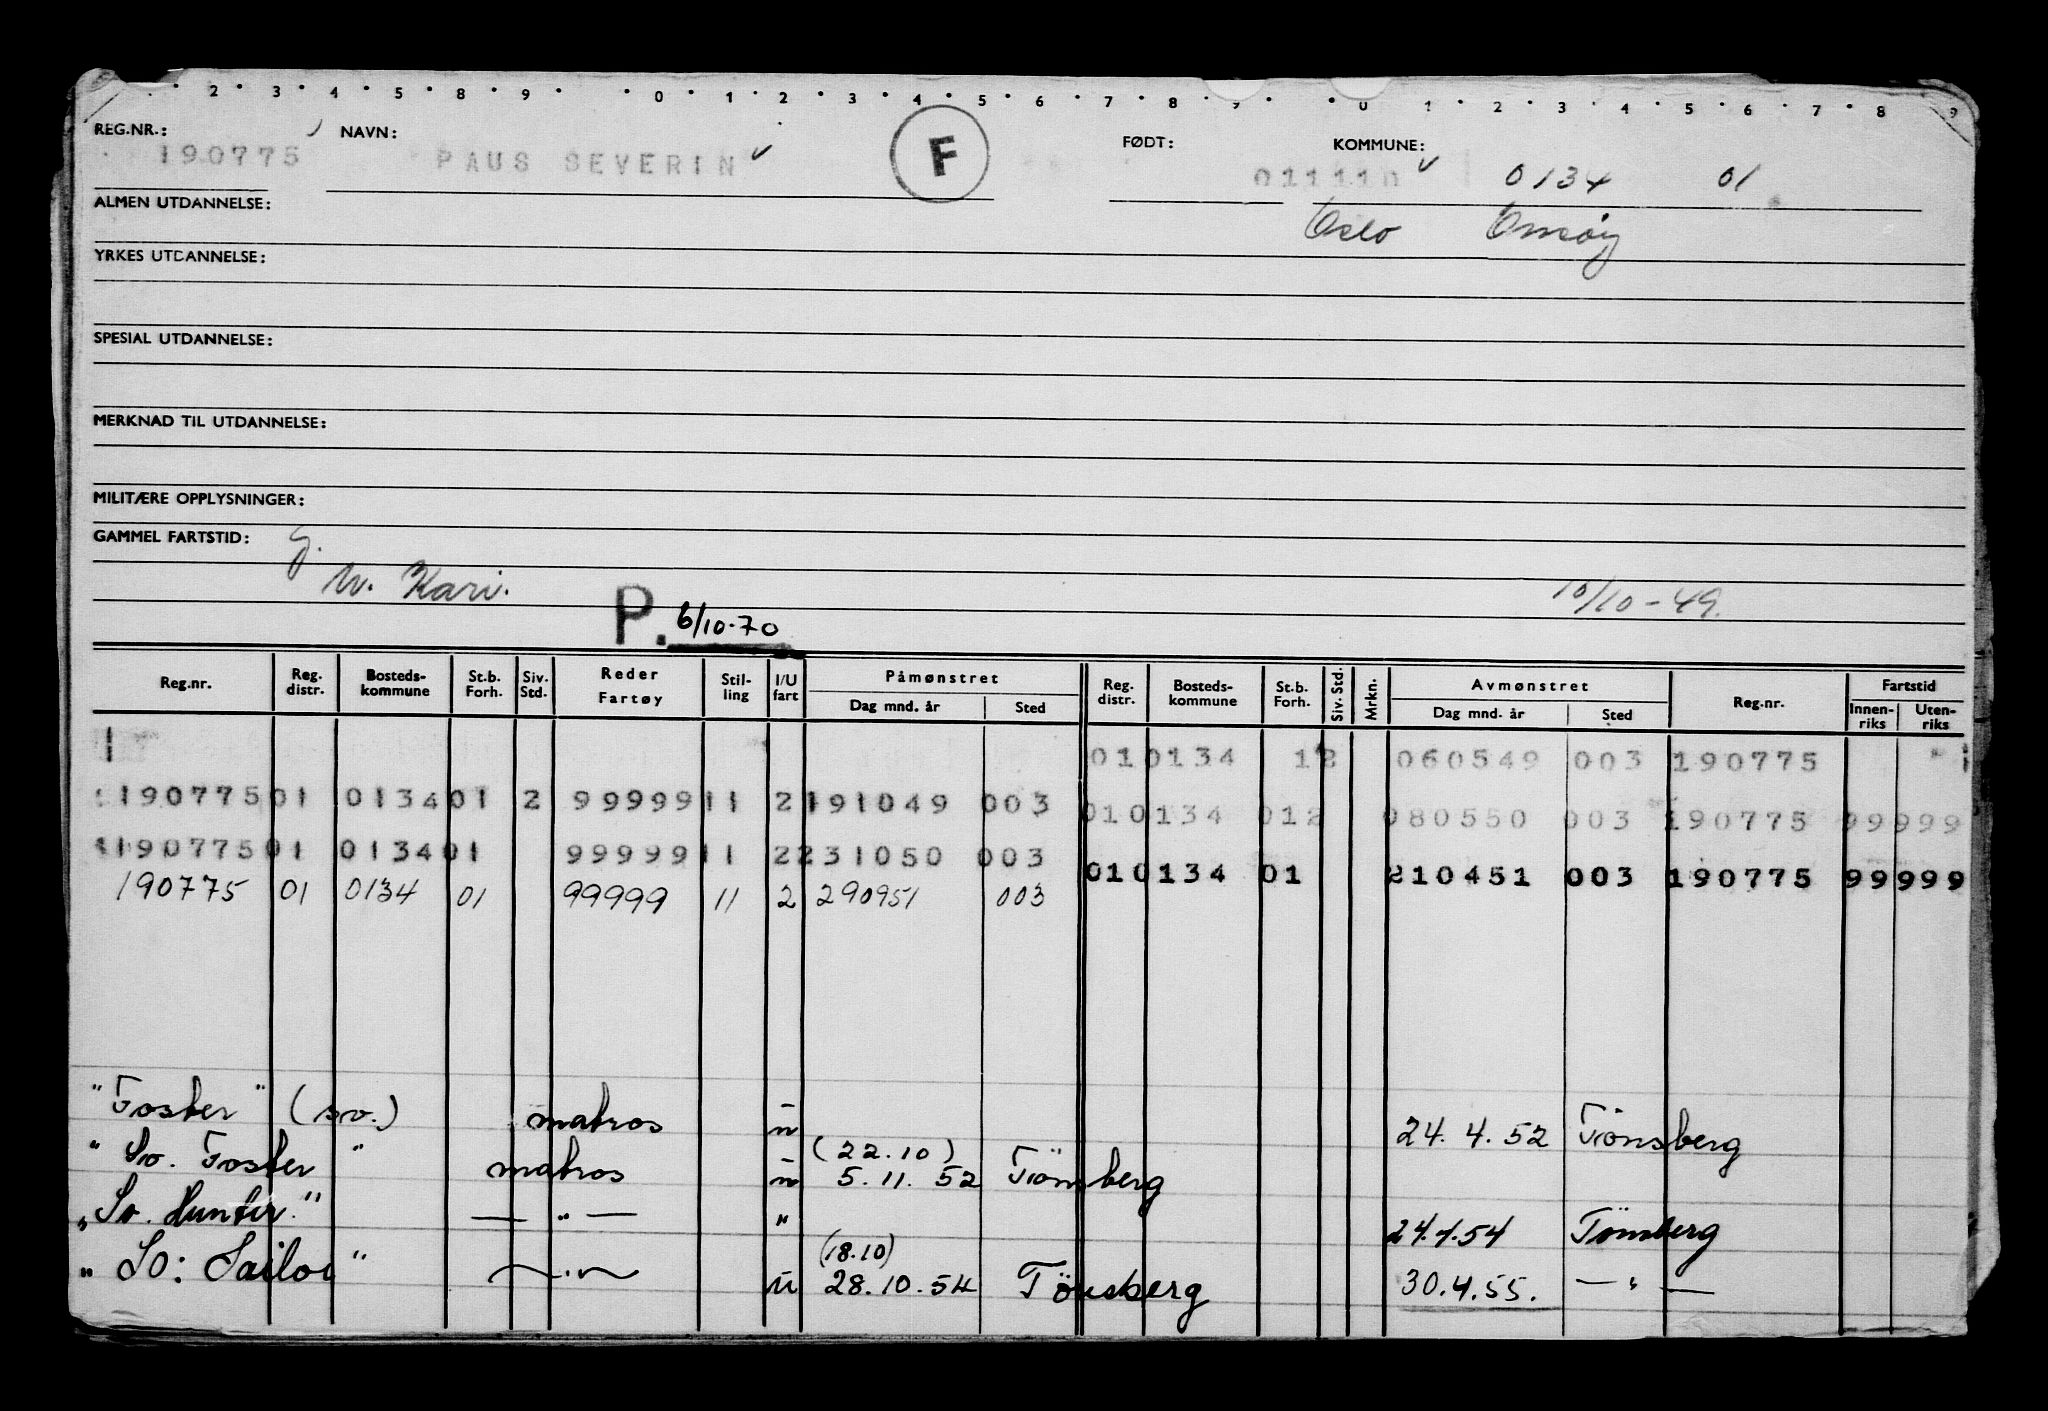 2 3 4 5 8 9 0 1 2 3 4 5 6 7 8 9 0 1 2 3 4 5 6 7 8 9
REG.NR.: NAVN: FØDT: KOMMUNE:
190775 PAUS SEVERIN F 011110 0134 01
ALMEN UTDANNELSE: Oslo
YRKES UTDANNELSE:
SPESIAL UTDANNELSE:
MERKNAD TIL UTDANNELSE:
MILITÆRE OPPLYSNINGER:
GAMMEL FARTSTID: g.
W. Kari. 10/10-49.
P. 6/10-70
Reg.nr. Reg. distr. Bosteds-kommune St.b. Forh. Siv. Std. Reder Fartøy Stil-ling I/U fart Påmønstret Dag mnd. år Sted Reg. distr. Bosteds-kommune St.b. Forh. Siv. Std. Mrkn. Avmønstret Dag mnd. år Sted Reg.nr. Fartstid Innen-riks Uten-riks
01 0134 12 060549 003 190775
190775 01 0134 01 2 99999 11 2 191049 003 01 0134 012 080550 003 190775 99999
190775 01 0134 01 99999 11 2 231050 003 01 0134 01 210451 003 190775 99999
190775 01 0134 01 99999 11 2 290951 003
"Foster" (sv.) matros u 24.4.52 Tönsberg
(22.10)
"Sv. Foster" matros u 5.11.52 Tönsberg
"Sv. Hunter." — " — " 24.4.54 Tönsberg
(18.10)
"So: Sailor" — " — u 28.10.54 Tönsberg 30.4.55. — " —